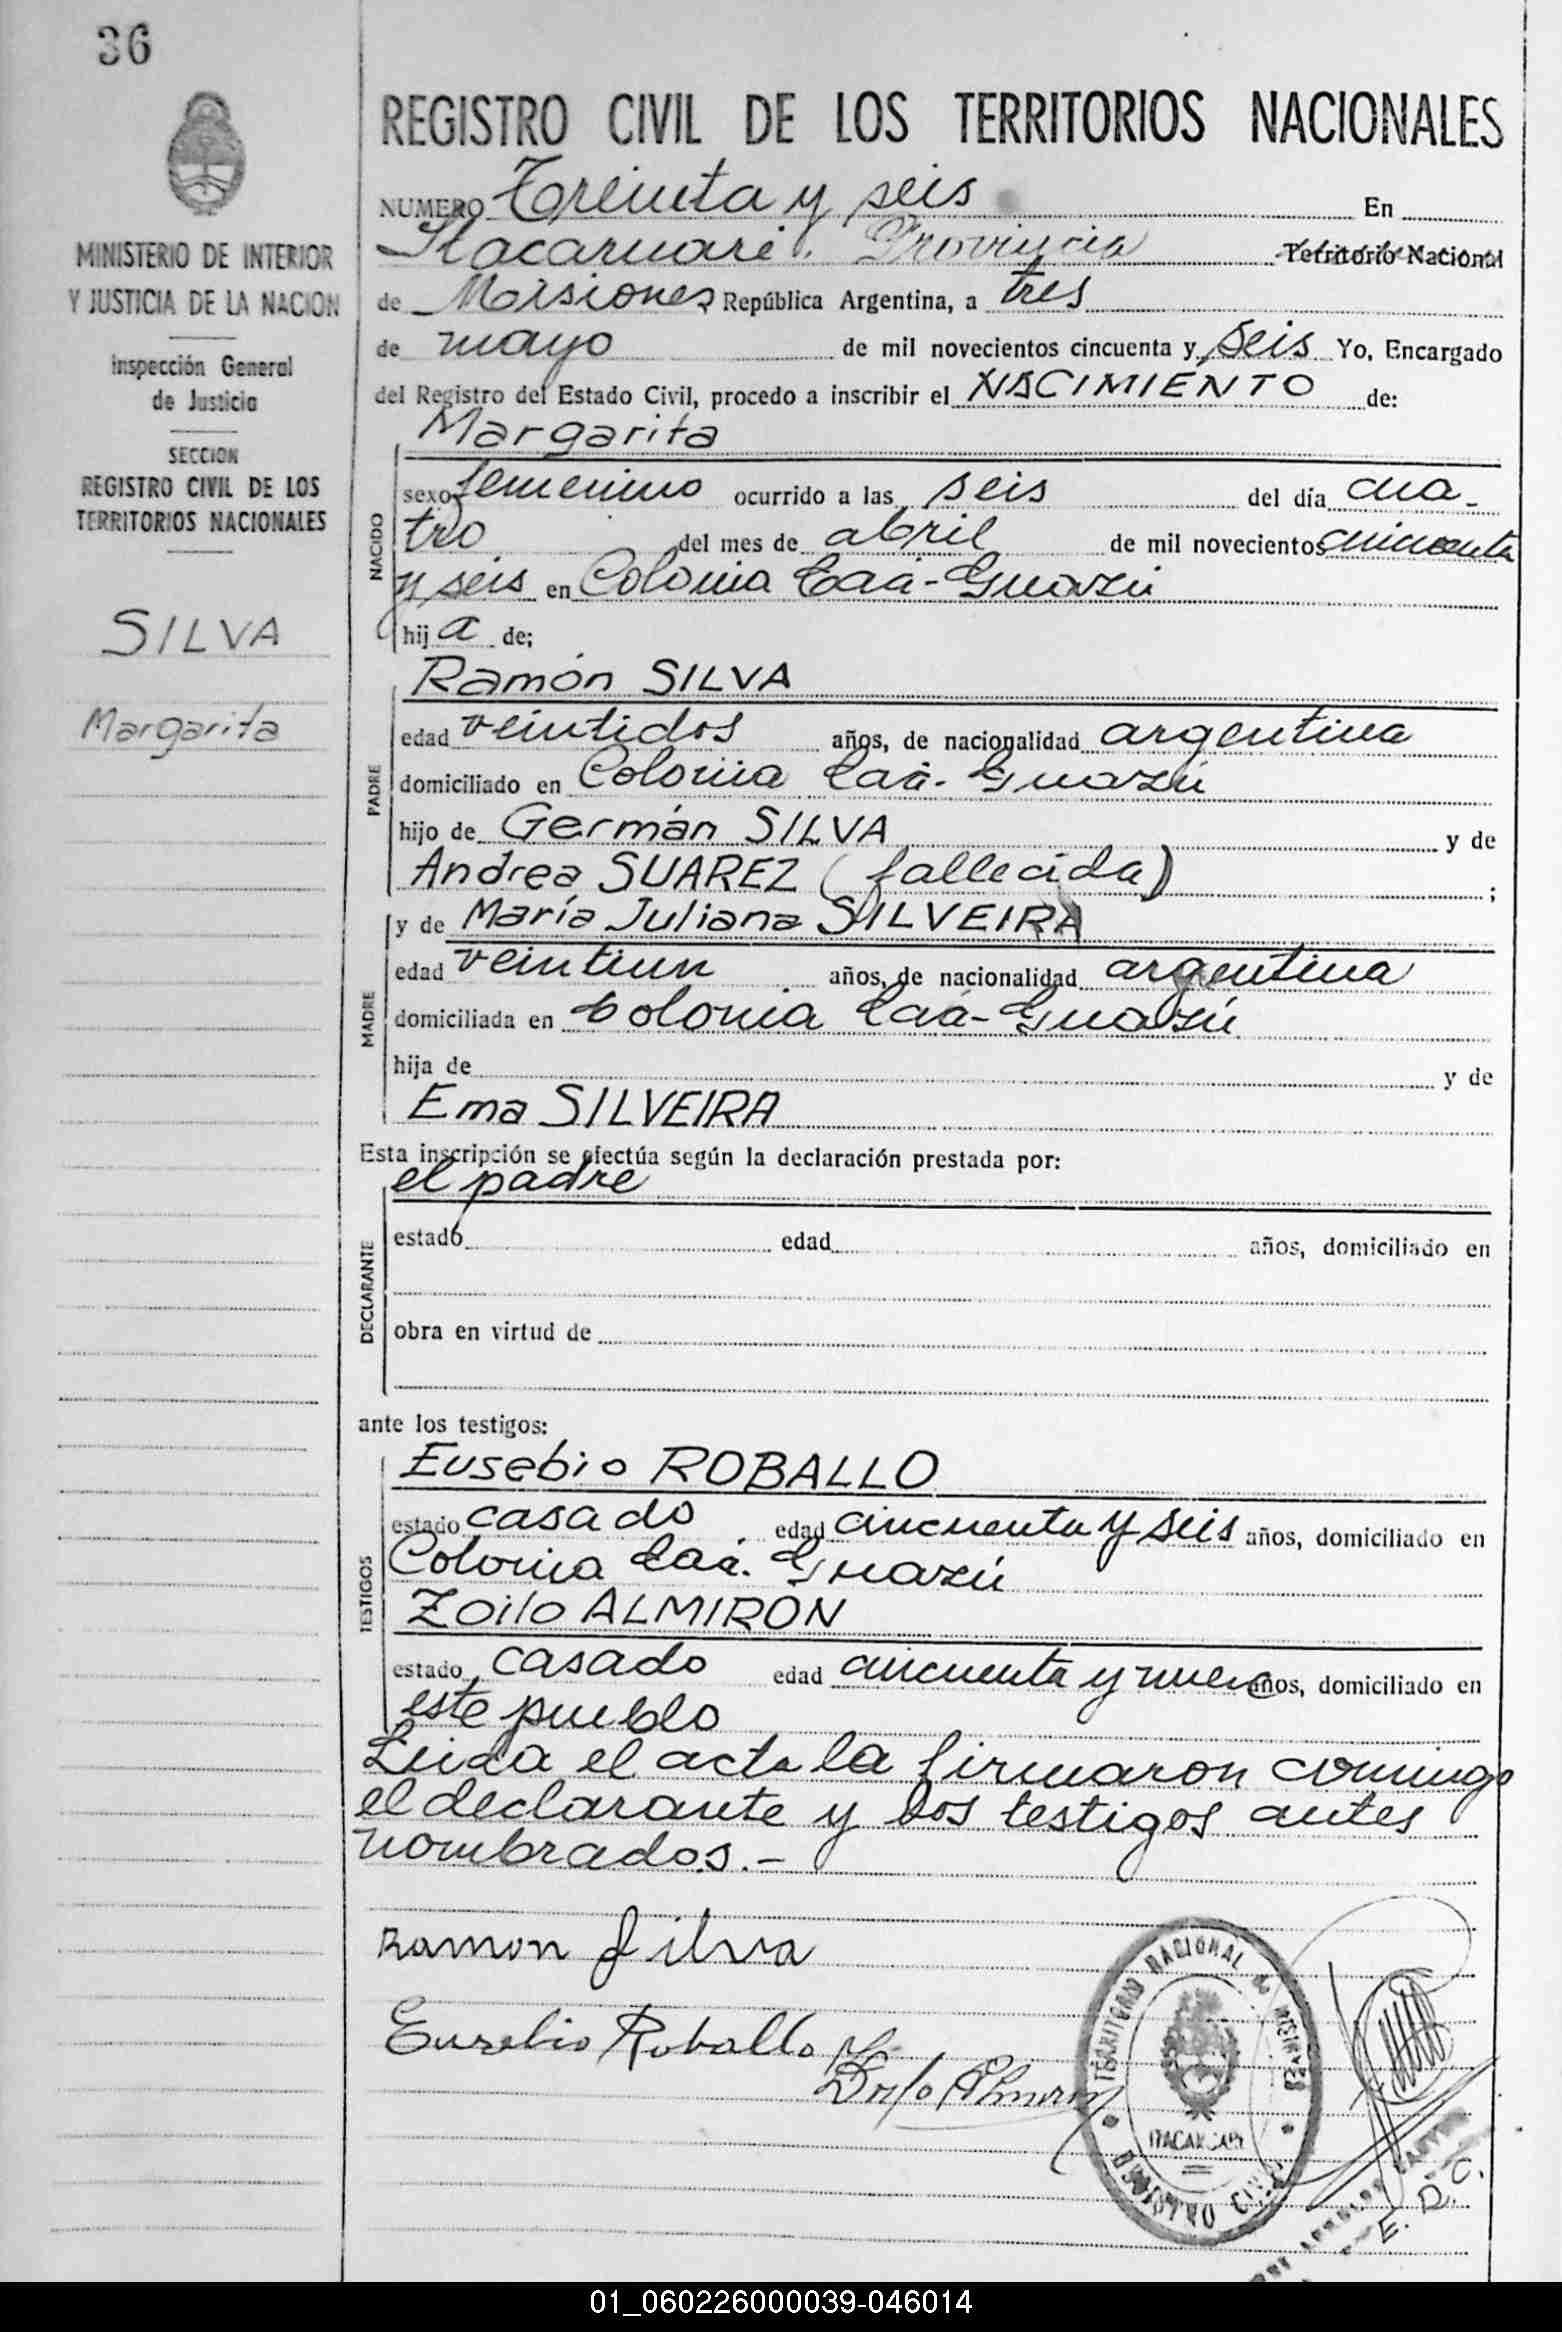 36
MINISTERIO DE INTERIOR
Y JUSTICIA DE LA NACION
Inspección General
de Justicia
SECCION
REGISTRO CIVIL DE LOS
TERRITORIOS NACIONALES
SILVA
Margarita
REGISTRO CIVIL DE LOS TERRITORIOS NACIONALES
NUMERO Treinta y seis En
Itacaruaré. Provincia Territorio Nacional
de Misiones República Argentina, a tres
de mayo de mil novecientos cincuenta y seis Yo, Encargado
del Registro del Estado Civil, procedo a inscribir el NACIMIENTO de:
Margarita
NACIDO
sexo femenino ocurrido a las seis del día cua-
tro del mes de abril de mil novecientos cincuenta
y seis en Colonia Caá-Guazú
hija de;
Ramón SILVA
PADRE
edad veintidos años, de nacionalidad argentina
domiciliado en Colonia Caá-Guazú
hijo de Germán SILVA y de
Andrea SUAREZ (fallecida) ;
y de María Juliana SILVEIRA
MADRE
edad veintiun años, de nacionalidad argentina
domiciliada en Colonia Caá-Guazú
hija de y de
Ema SILVEIRA
Esta inscripción se efectúa según la declaración prestada por:
el padre
DECLARANTE
estado edad años, domiciliado en
obra en virtud de
ante los testigos:
Eusebio ROBALLO
TESTIGOS
estado casado edad cincuenta y seis años, domiciliado en
Colonia Caá-Guazú
Zoilo ALMIRON
estado casado edad cincuenta y nueve años, domiciliado en
este pueblo
Leida el acta la firmaron conmigo
el declarante y los testigos antes
nombrados.-
Ramon Silva
Eusebio Roballo
Zoilo Almiron
TERRITORIO NACIONAL DE MISIONES
ITACARUARE
REGISTRO CIVIL
E. R. C.
01_060226000039-046014